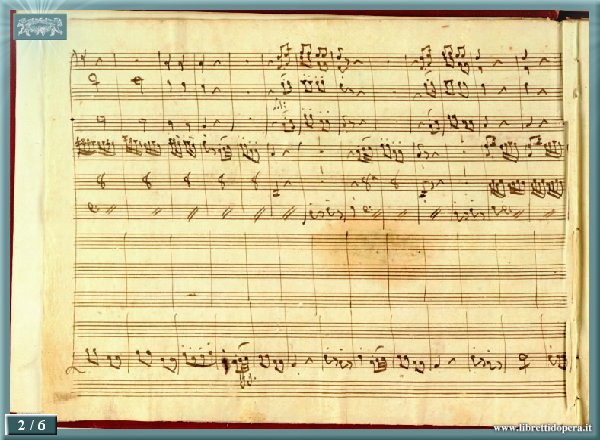 2 / 6
www.librettidopera.it